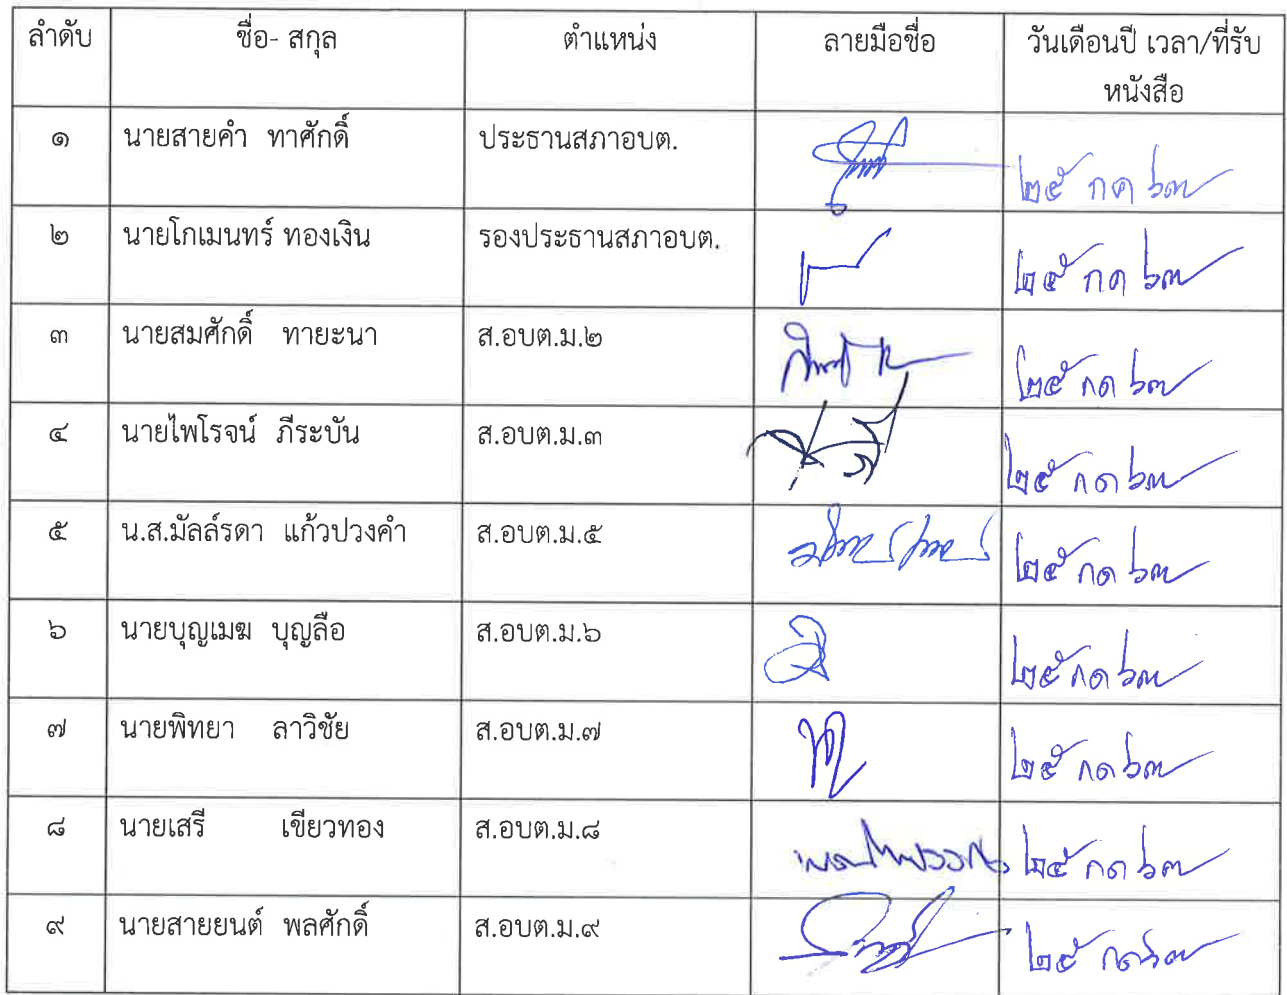 ลำดับ ชื่อ- สกุล ตำแหน่ง ลายมือชื่อ วันเดือนปี เวลา/ที่รับ
หนังสือ
๑ นายสายคำ ทาศักดิ์ ประธานสภาอบต. ๒๕ กค ๖๓
๒ นายโกเมนทร์ ทองเงิน รองประธานสภาอบต. ๒๕ กค ๖๓
๓ นายสมศักดิ์ ทายะนา ส.อบต.ม.๒ ๒๕ กค ๖๓
๔ นายไพโรจน์ ภีระบัน ส.อบต.ม.๓ ๒๕ กค ๖๓
๕ น.ส.มัลล์รดา แก้วปวงคำ ส.อบต.ม.๕ ๒๕ กค ๖๓
๖ นายบุญเมฆ บุญลือ ส.อบต.ม.๖ ๒๕ กค ๖๓
๗ นายพิทยา ลาวิชัย ส.อบต.ม.๗ ๒๕ กค ๖๓
๘ นายเสรี เขียวทอง ส.อบต.ม.๘ ๒๕ กค ๖๓
๙ นายสายยนต์ พลศักดิ์ ส.อบต.ม.๙ ๒๕ กค ๖๓